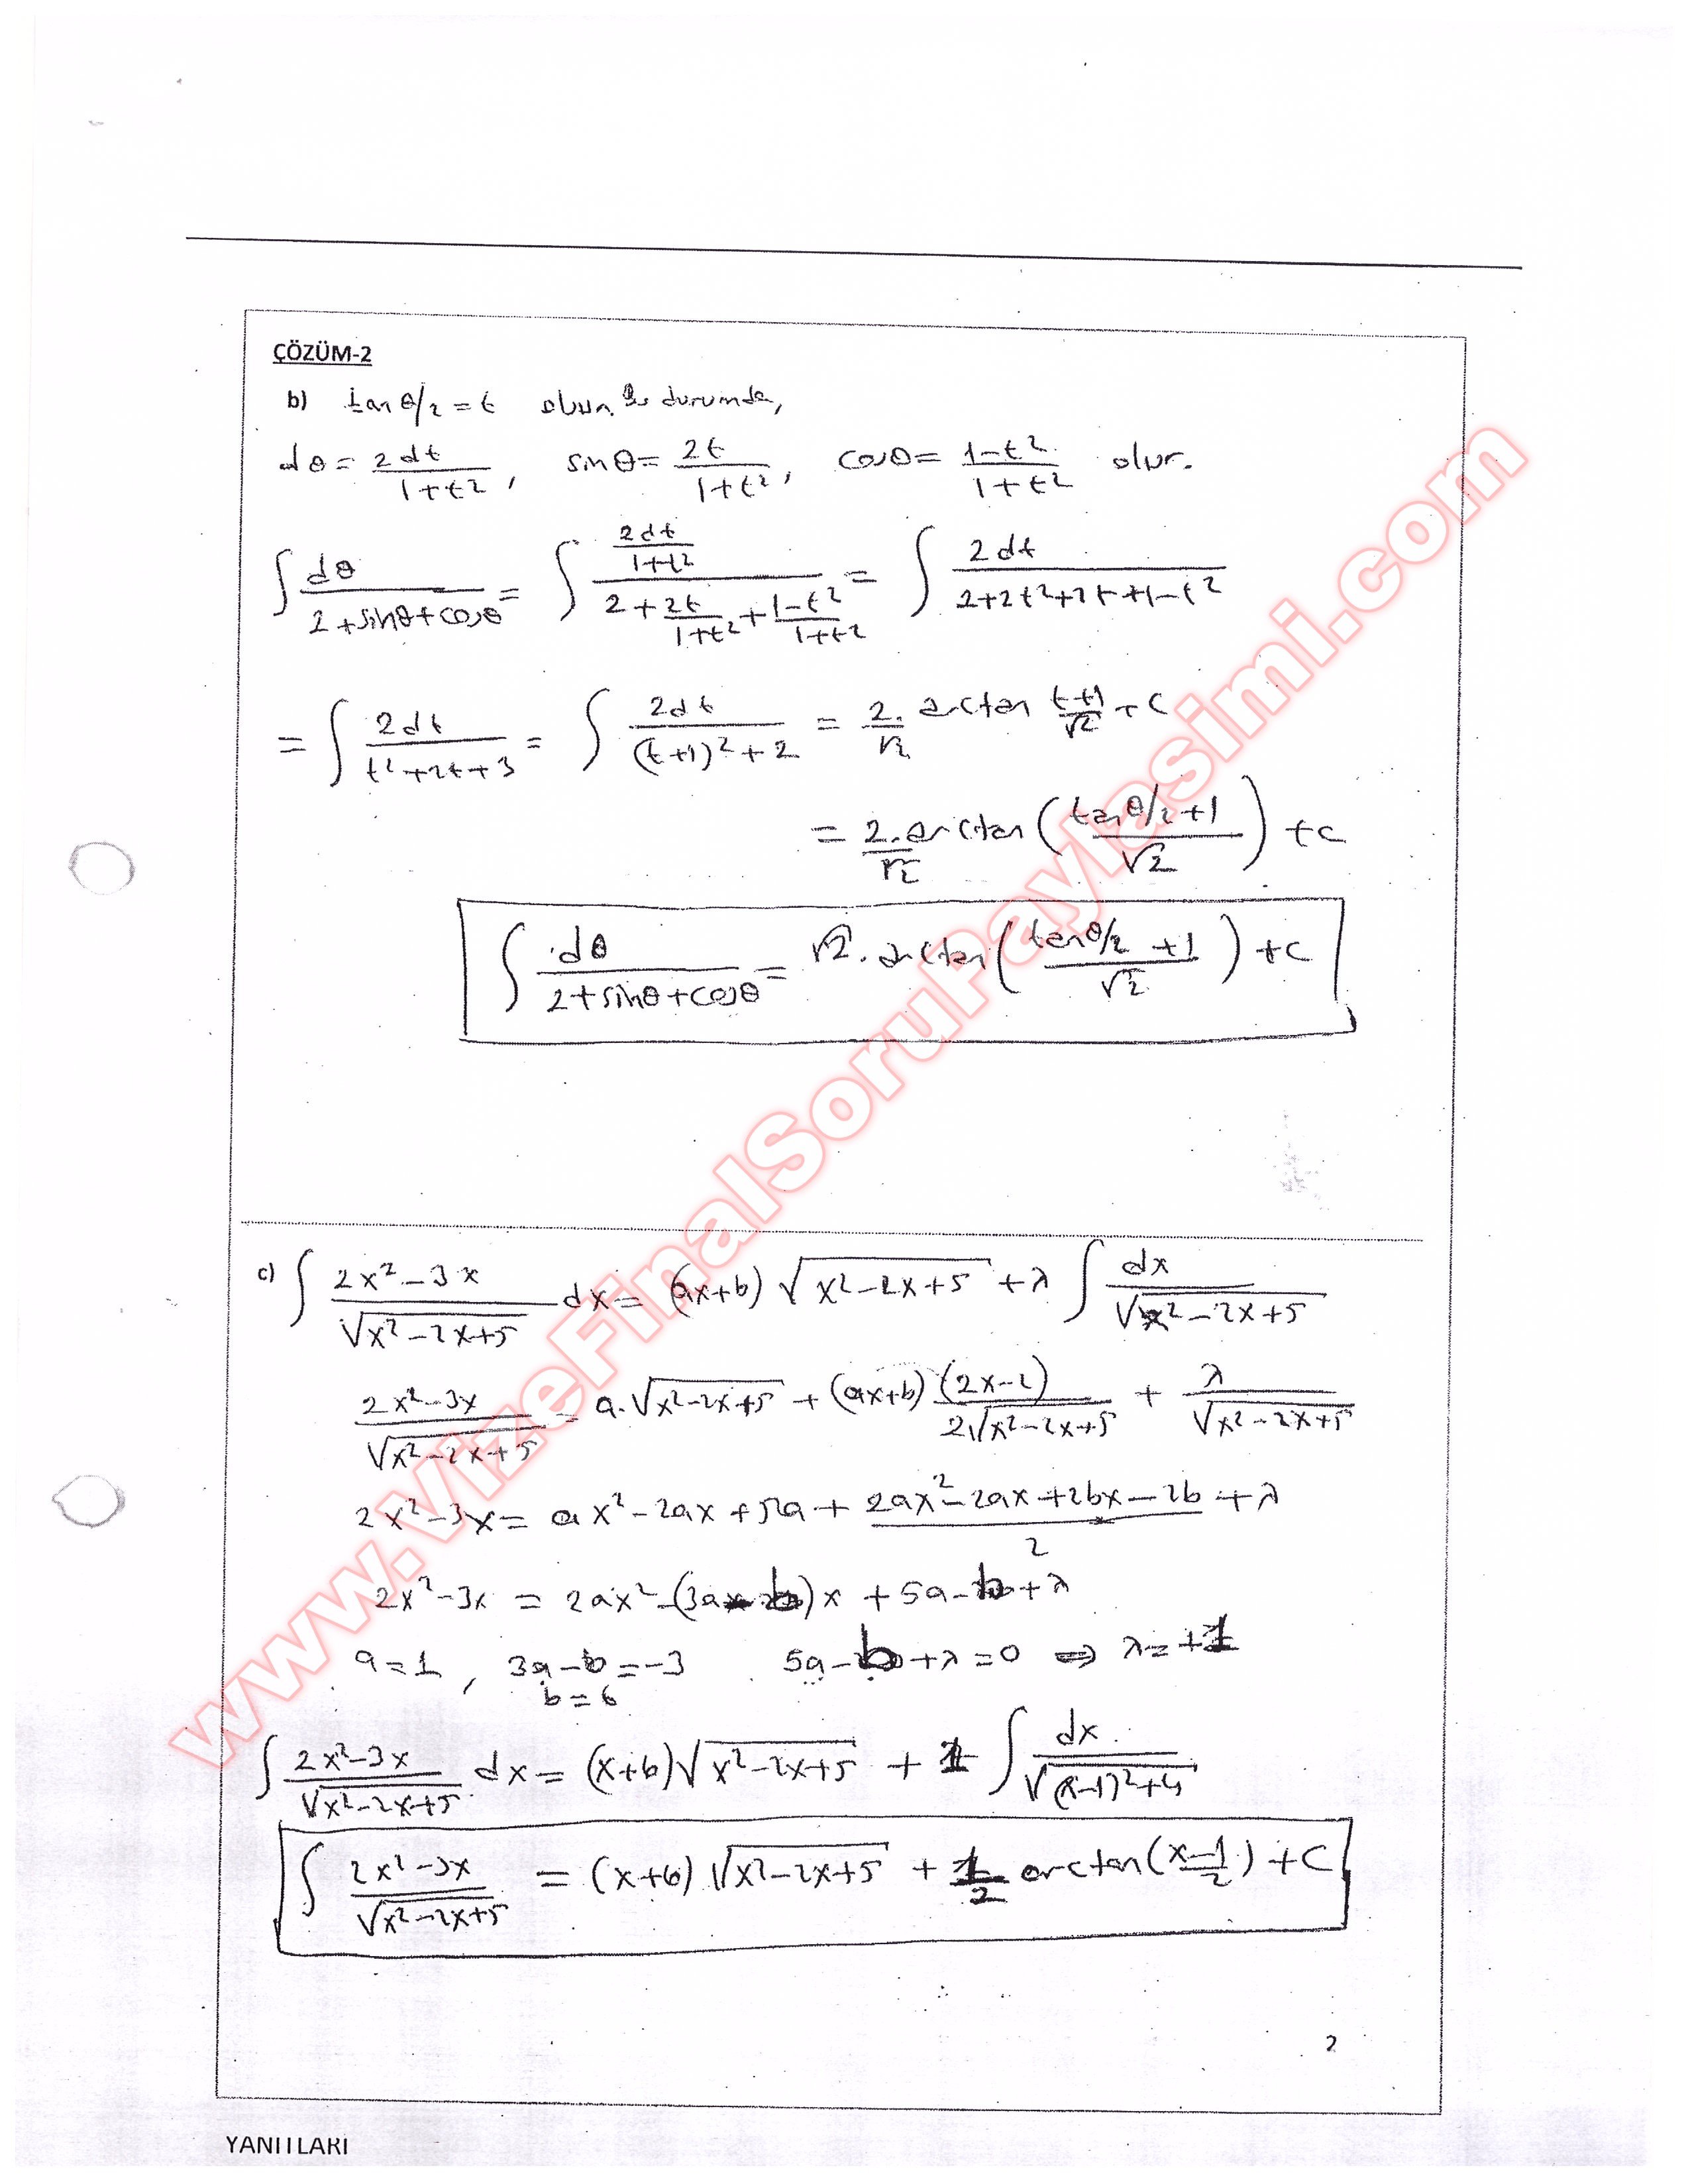 ÇÖZÜM-2
b) tan θ/2 = t olsun. Bu durumda,
dθ = 2dt/(1+t²), sinθ = 2t/(1+t²), cosθ = (1-t²)/(1+t²) olur.
∫ dθ/(2+sinθ+cosθ) = ∫ (2dt/(1+t²))/(2 + 2t/(1+t²) + (1-t²)/(1+t²)) = ∫ 2dt/(2+2t²+2t+1-t²)
= ∫ 2dt/(t²+2t+3) = ∫ 2dt/((t+1)²+2) = 2/√2 . arctan (t+1)/√2 + C
= 2/√2 . arctan ((tan θ/2 + 1)/√2) + C
∫ dθ/(2+sinθ+cosθ) = √2 . arctan ((tan θ/2 + 1)/√2) + C
c) ∫ (2x²-3x)/√(x²-2x+5) dx = (ax+b) √(x²-2x+5) + λ ∫ dx/√(x²-2x+5)
(2x²-3x)/√(x²-2x+5) = a.√(x²-2x+5) + (ax+b) (2x-2)/(2√(x²-2x+5)) + λ/√(x²-2x+5)
2x²-3x = ax²-2ax+5a + (2ax²-2ax+2bx-2b)/2 + λ
2x²-3x = 2ax²-(3a-b)x + 5a-b+λ
a=1, 3a-b=-3 5a-b+λ=0 ⇒ λ=+1
b=6
∫ (2x²-3x)/√(x²-2x+5) dx = (x+6)√(x²-2x+5) + 1 ∫ dx/√((x-1)²+4)
∫ (2x²-3x)/√(x²-2x+5) = (x+6) √(x²-2x+5) + 1/2 arctan((x-1)/2) + C
2
YANITLARI
www.VizeFinalSoruPaylasimi.com